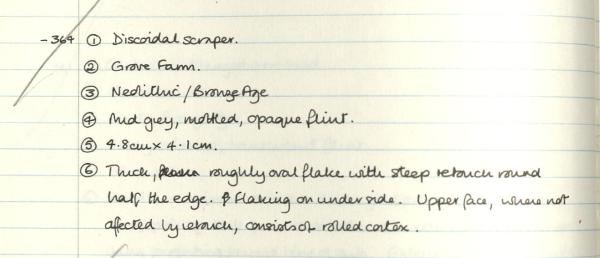 -364 ① Discoidal scraper.
② Grove Farm.
③ Neolithic/Bronze Age
④ Mid grey, mottled, opaque flint.
⑤ 4.8cm x 4.1cm.
⑥ Thick, roughly oval flake with steep retouch round
half the edge. Flaking on underside. Upper face, where not
affected by retouch, consists of rolled cortex.